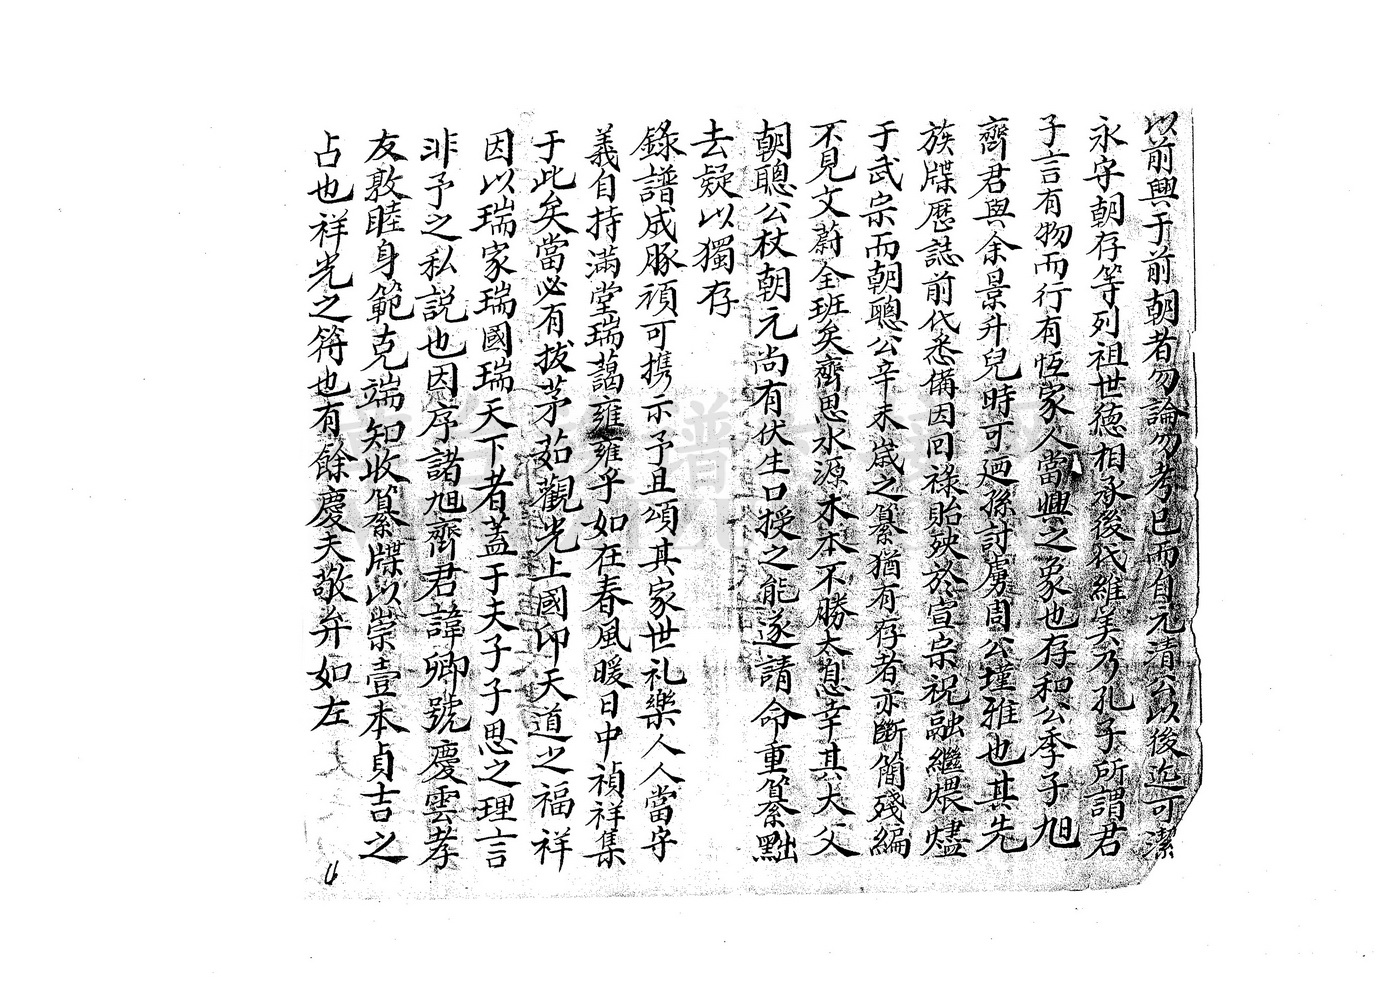 以前興于前朝者勿論勿考已而自元清公以後迄可潔
永字朝存等列祖世德相承後代維美乃孔子所謂君
子言有物而行有恆家人當興之象也存和公季子旭
齊君與余景升兒時可廼孫討虜周公瑾雅也其先
族牒歷誌前代悉備因回祿貽殃於宣宗祝融繼煨燼
于武宗而朝聰公辛未歲之纂猶有存者亦斷簡殘編
不見文蔚全班矣齊思水源木本不勝太息幸其大父
朝聰公杖朝元尚有伏生口授之能遂請命重纂黜
去疑以獨存
錄譜成豚頑可携示予且頌其家世礼樂人人當守
義自持滿堂瑞藹雍雍乎如在春風暖日中禎祥集
于此矣當必有拔茅茹觀光上國仰天道之福祥
因以瑞家瑞國瑞天下者蓋于夫子子思之理言
非予之私説也因序諸旭齊君諱卿號慶雲孝
友敦睦身範克端知收纂牒以崇壹本貞吉之
占也祥光之符也有餘慶夫敬弁如左